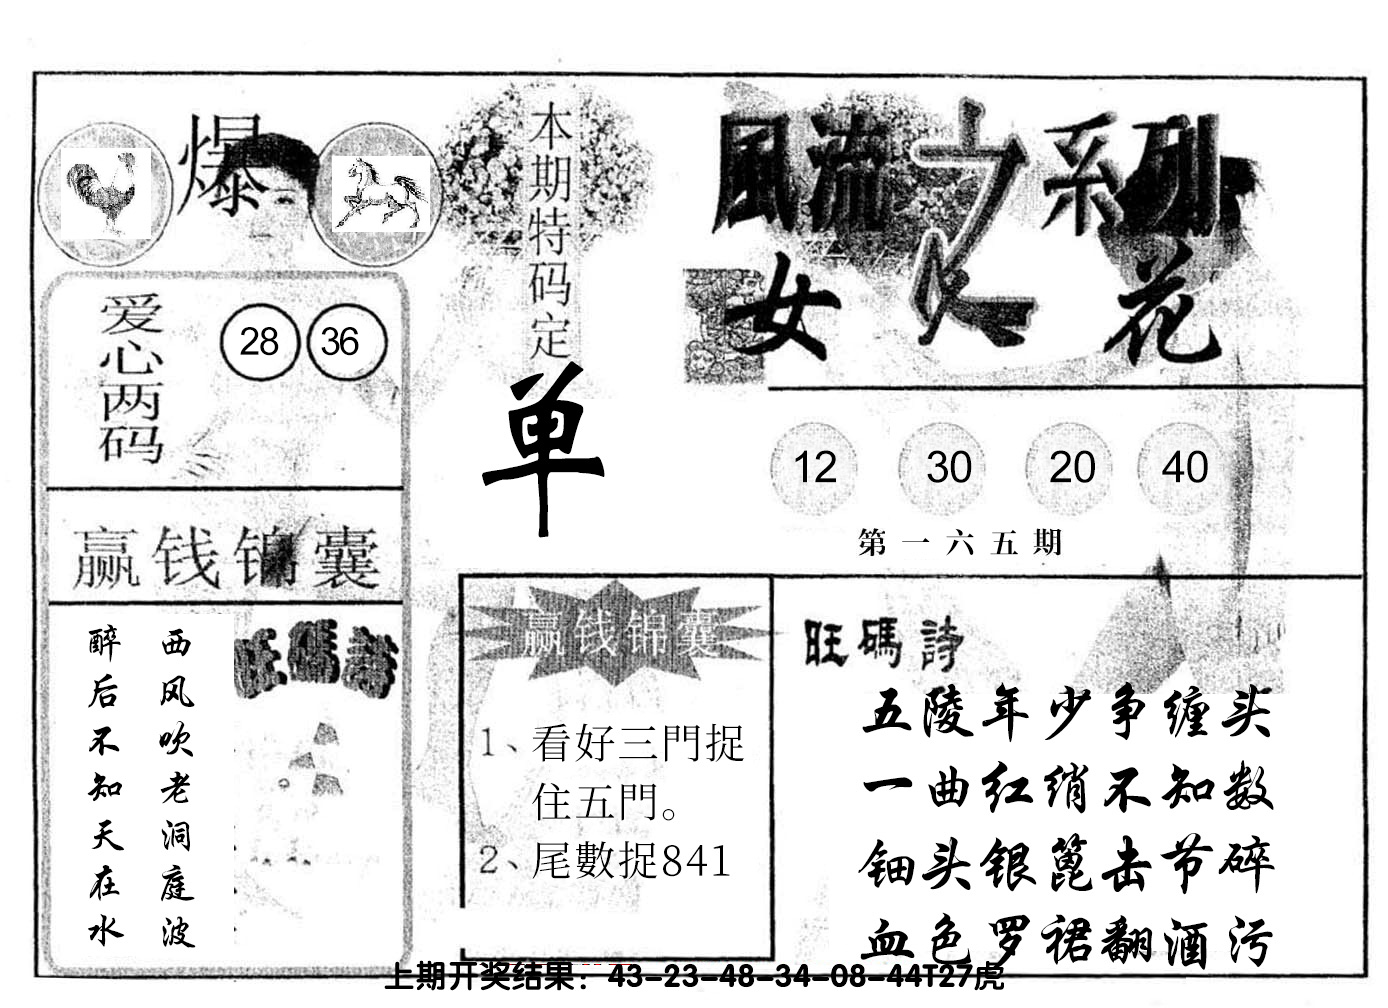 爆
爱心两码
28 36
赢钱锦囊
西风吹老洞庭波
醉后不知天在水
旺碼詩
本期特码定
单
風流之系列
女人花
12 30 20 40
第一六五期
赢钱锦囊
1、看好三門捉
住五門。
2、尾數捉841
旺碼詩
五陵年少争缠头
一曲红绡不知数
钿头银篦击节碎
血色罗裙翻酒污
上期开奖结果：43-23-48-34-08-44T27虎